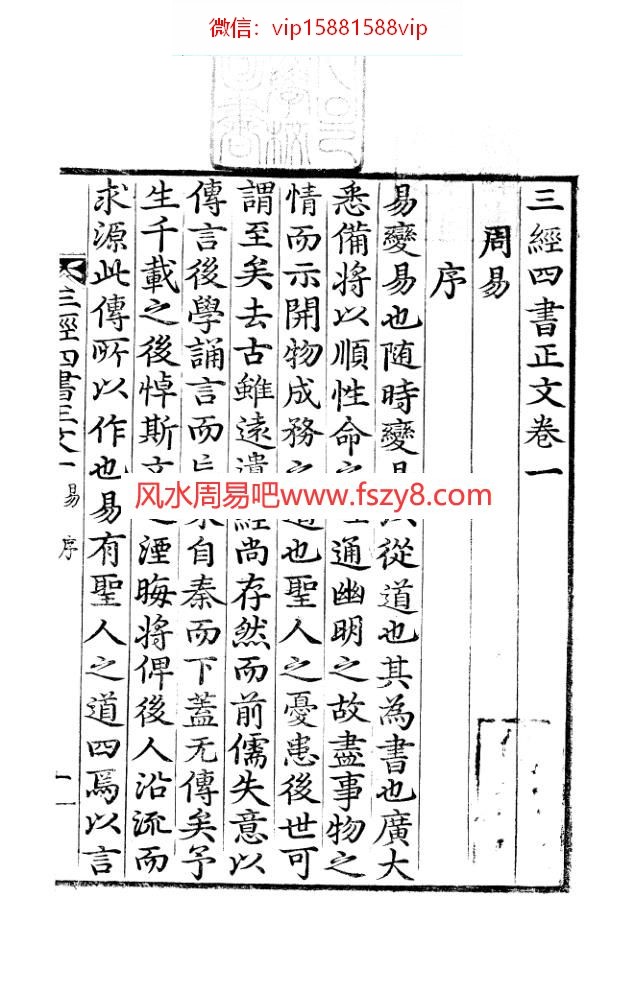 微信：vip15881588vip
三經四書正文卷一
周易
序
易變易也随時變易以從道也其為書也廣大
悉備將以順性命之理通幽明之故盡事物之
情而示開物成務之道也聖人之憂患後世可
謂至矣去古雖遠遺經尚存然而前儒失意以
傳言後學誦言而自秦而下蓋无傳矣予
生千載之後悼斯文之湮晦將俾後人沿流而
求源此傳所以作也易有聖人之道四焉以言
三經四書正文一 易序
风水周易吧www.fszy8.com